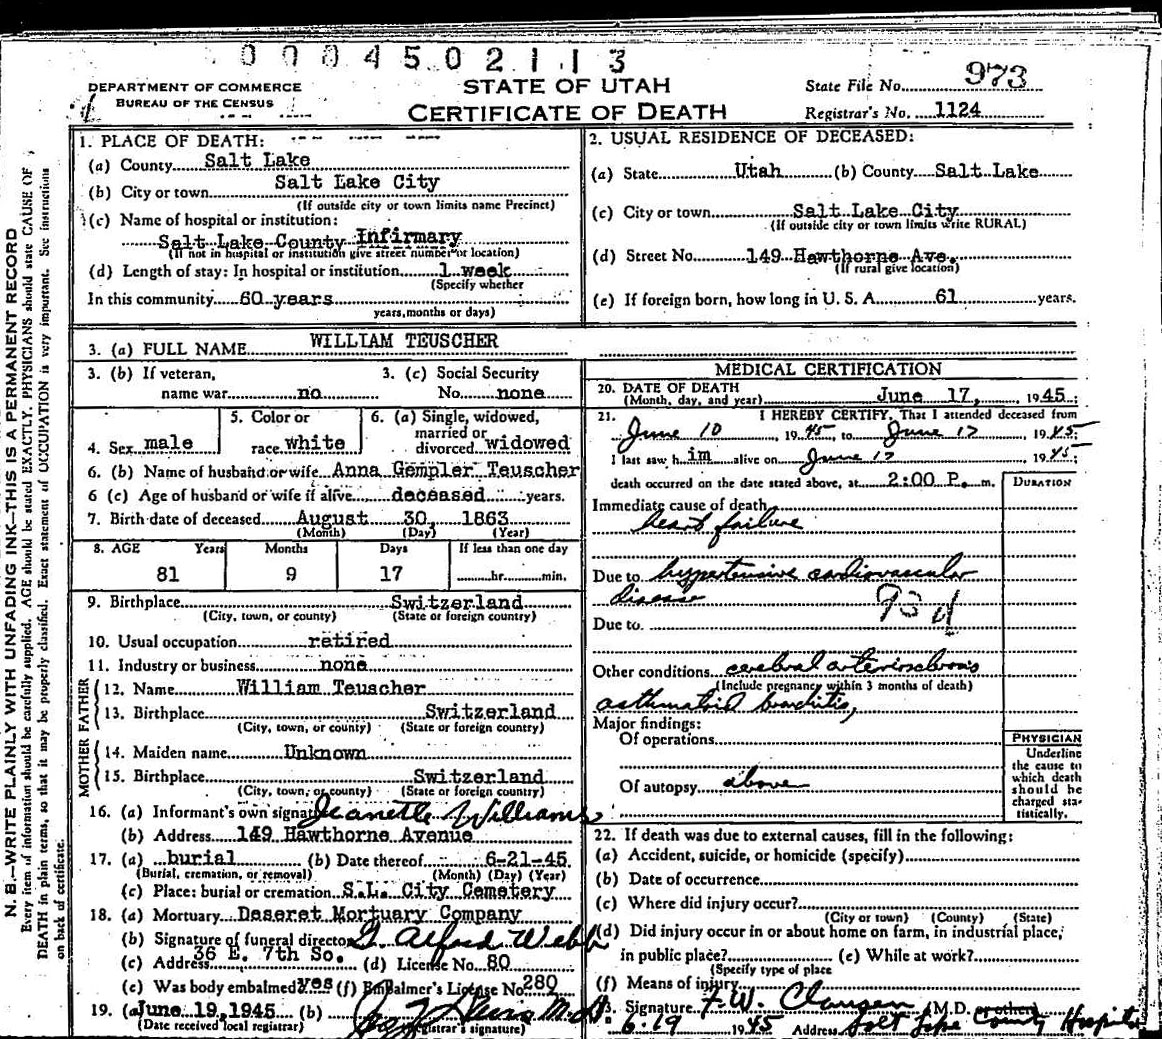 0004502113
DEPARTMENT OF COMMERCE
BUREAU OF THE CENSUS
STATE OF UTAH
CERTIFICATE OF DEATH
State File No. 973
Registrar's No. 1124
N. B.—WRITE PLAINLY WITH UNFADING INK—THIS IS A PERMANENT RECORD
Every item of information should be carefully supplied. AGE should be stated EXACTLY. PHYSICIANS should state CAUSE OF
DEATH in plain terms, so that it may be properly classified. Exact statement of OCCUPATION is very important. See instructions
on back of certificate.
1. PLACE OF DEATH:
(a) County Salt Lake
(b) City or town Salt Lake City
(If outside city or town limits name Precinct)
(c) Name of hospital or institution:
Salt Lake County Infirmary
(If not in hospital or institution give street number or location)
(d) Length of stay: In hospital or institution 1 week
(Specify whether
In this community 60 years
years, months or days)
2. USUAL RESIDENCE OF DECEASED:
(a) State Utah (b) County Salt Lake
(c) City or town Salt Lake City
(If outside city or town limits write RURAL)
(d) Street No. 149 Hawthorne Ave.
(If rural give location)
(e) If foreign born, how long in U. S. A. 61 years.
3. (a) FULL NAME WILLIAM TEUSCHER
3. (b) If veteran,
name war no
3. (c) Social Security
No. none
4. Sex male
5. Color or
race white
6. (a) Single, widowed,
married or
divorced widowed
6. (b) Name of husband or wife Anna Gempler Teuscher
6 (c) Age of husband or wife if alive deceased years.
7. Birth date of deceased August 30, 1863
(Month) (Day) (Year)
8. AGE Years Months Days If less than one day
81 9 17 hr. min.
9. Birthplace Switzerland
(City, town, or county) (State or foreign country)
10. Usual occupation retired
11. Industry or business none
FATHER
12. Name William Teuscher
13. Birthplace Switzerland
(City, town, or county) (State or foreign country)
MOTHER
14. Maiden name Unknown
15. Birthplace Switzerland
(City, town, or county) (State or foreign country)
16. (a) Informant's own signature Jeanette Williams
(b) Address 149 Hawthorne Avenue
17. (a) burial (b) Date thereof 6-21-45
(Burial, cremation, or removal) (Month) (Day) (Year)
(c) Place: burial or cremation S.L. City Cemetery
18. (a) Mortuary Deseret Mortuary Company
(b) Signature of funeral director G. Alford Webb
(c) Address 36 E. 7th So. (d) License No. 80
(e) Was body embalmed? yes (f) Embalmer's License No. 280
19. (a) June 19, 1945 (b) M.D.
(Date received local registrar) (Registrar's signature)
MEDICAL CERTIFICATION
20. DATE OF DEATH
(Month, day, and year) June 17, 1945
21. I HEREBY CERTIFY, That I attended deceased from
June 10, 1945, to June 17, 1945
I last saw him alive on June 17 1945;
death occurred on the date stated above, at 2:00 P. m.
DURATION
Immediate cause of death
heart failure
Due to hypertensive cardiovascular
disease 93 d
Due to
Other conditions cerebral arteriosclerosis
(Include pregnancy within 3 months of death)
asthmatic bronchitis,
Major findings:
Of operations
Of autopsy above
PHYSICIAN
Underline
the cause to
which death
should be
charged sta-
tistically.
22. If death was due to external causes, fill in the following:
(a) Accident, suicide, or homicide (specify)
(b) Date of occurrence
(c) Where did injury occur?
(City or town) (County) (State)
(d) Did injury occur in or about home on farm, in industrial place,
in public place? (e) While at work?
(Specify type of place
(f) Means of injury
23. Signature F. W. Clausen (M.D. or other)
6-19 1945 Address Salt Lake County Hospital